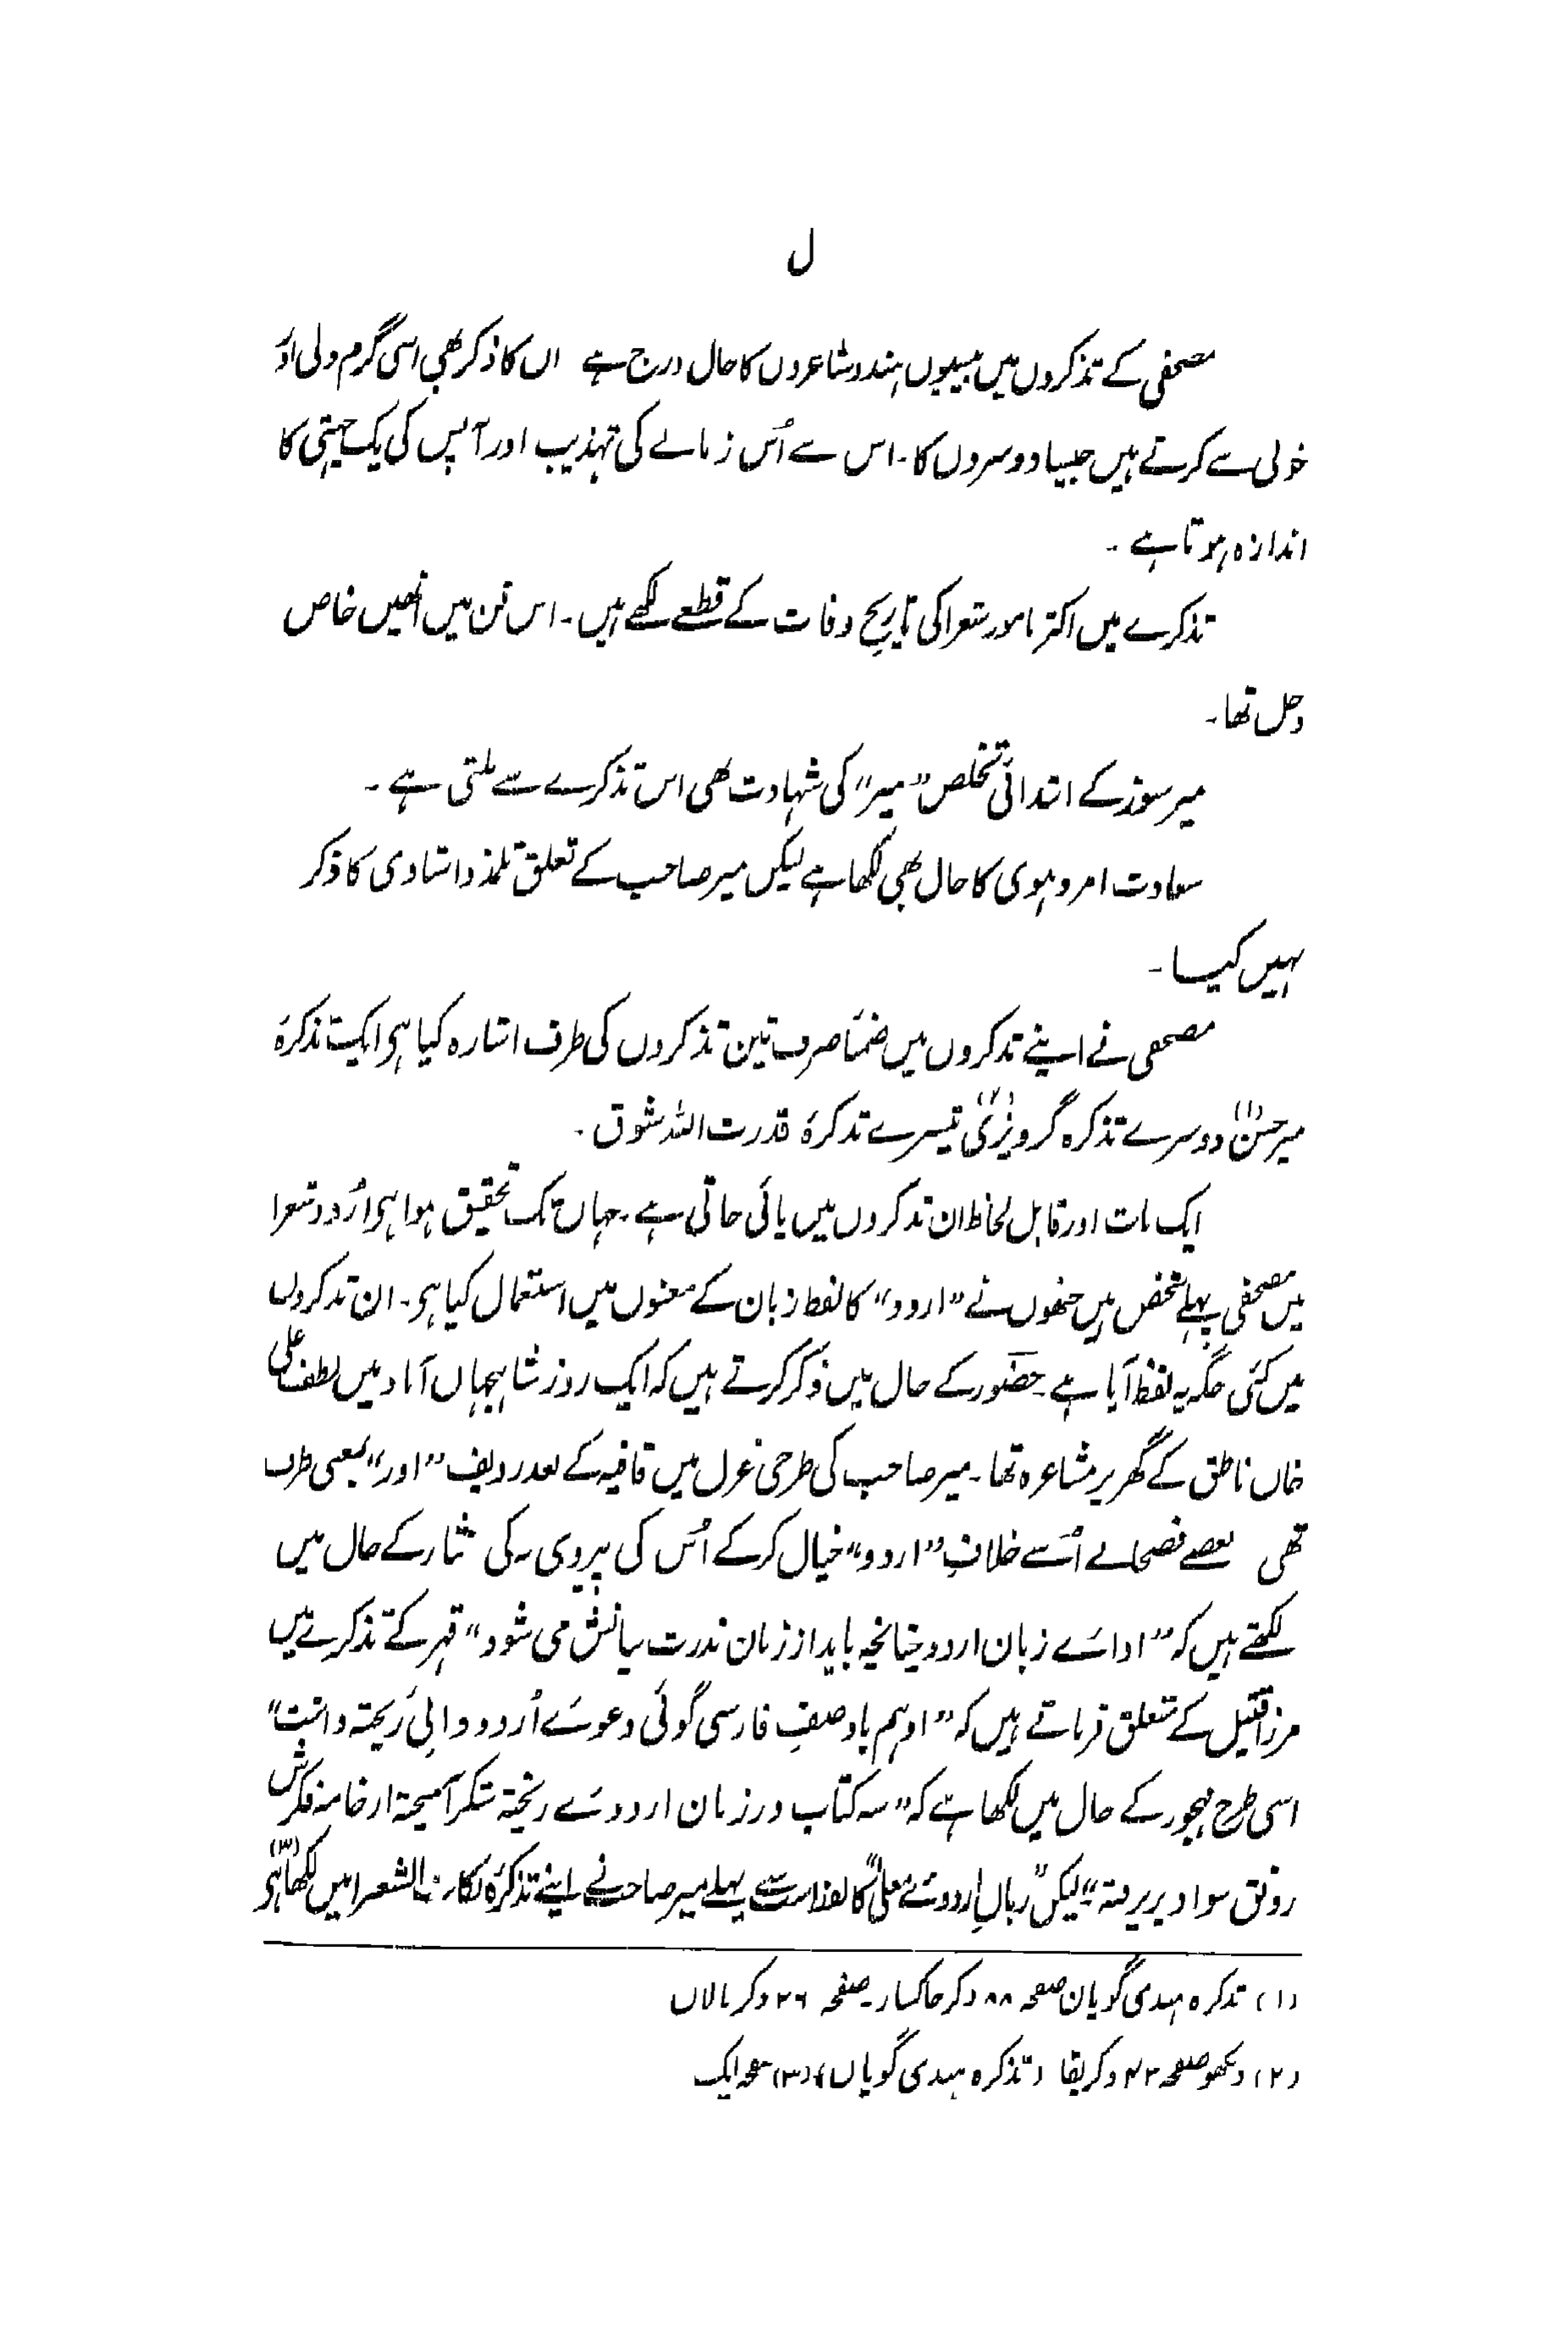 ل
مصحفی کے تذکروں میں بیسیوں ہندو شاعروں کا حال درج ہے ان کا ذکر بھی اسی گرم دلی اور
خوبی سے کرتے ہیں جیسا دوسروں کا۔ اس سے اُس زمانے کی تہذیب اور آپس کی یک جہتی کا
اندازہ ہوتا ہے۔
تذکرے میں اکثر نامور شعرا کی تاریخ وفات کے قطعے لکھے ہیں۔ اس فن میں انھیں خاص
دخل تھا۔
میر سوز کے ابتدائی تخلص "میر" کی شہادت بھی اس تذکرے سے ملتی ہے۔
سعادت امروہوی کا حال بھی لکھا ہے لیکن میر صاحب کے تعلق تلمذ و استادی کا ذکر
نہیں کیا۔
مصحفی نے اپنے تذکروں میں ضمناً صرف تین تذکروں کی طرف اشارہ کیا ہی ایک تذکرۂ
میر حسن(۱) دوسرے تذکرہ گردیزی(۲) تیسرے تذکرۂ قدرت اللہ شوق۔
ایک بات اور قابل لحاظ ان تذکروں میں پائی جاتی ہے۔ جہاں تک تحقیق ہوا ہی اُردو شعرا
میں مصحفی پہلے شخص ہیں جنھوں نے "اردو" کا لفظ زبان کے معنوں میں استعمال کیا ہی۔ ان تذکروں
میں کئی جگہ یہ لفظ آیا ہے۔ حضور کے حال میں ذکر کرتے ہیں کہ ایک روز شاہجہاں آباد میں لطف علی
خاں ناطق کے گھر پر مشاعرہ تھا۔ میر صاحب کی طرحی غزل میں قافیہ کے بعد ردیف "اور" بمعنی طرف
تھی بعضے فصحا نے اُسے خلافِ "اردو" خیال کر کے اُس کی پیروی نہ کی نثار کے حال میں
لکھتے ہیں کہ "ادائے زبان اردو چنانچہ باید از زبان ندرت بیانش می شود" قہر کے تذکرے میں
مرزا قتیل کے متعلق فرماتے ہیں کہ "او ہم باوصفِ فارسی گوئی دعوئے اُردو دانیِ ریختہ داشت"
اسی طرح مہجور کے حال میں لکھا ہے کہ "سہ کتاب در زبان اردوئے ریختہ شکر آمیختہ از خامہ فکرش
رونق سواد پذیرفتہ" لیکن "زبانِ اُردوئے معلیٰ" کا لفظ اس سے پہلے میر صاحب نے اپنے تذکرۂ نکات الشعرا میں لکھا ہی(۳)
(۱) تذکرہ ہندی گویان صفحہ ۸۸ ذکر خاکسار۔ صفحہ ۲۶ ذکر نالاں
(۲) دیکھو صفحہ ۴۲ ذکر بقا (تذکرہ ہندی گویاں) (۳) صفحہ ایک